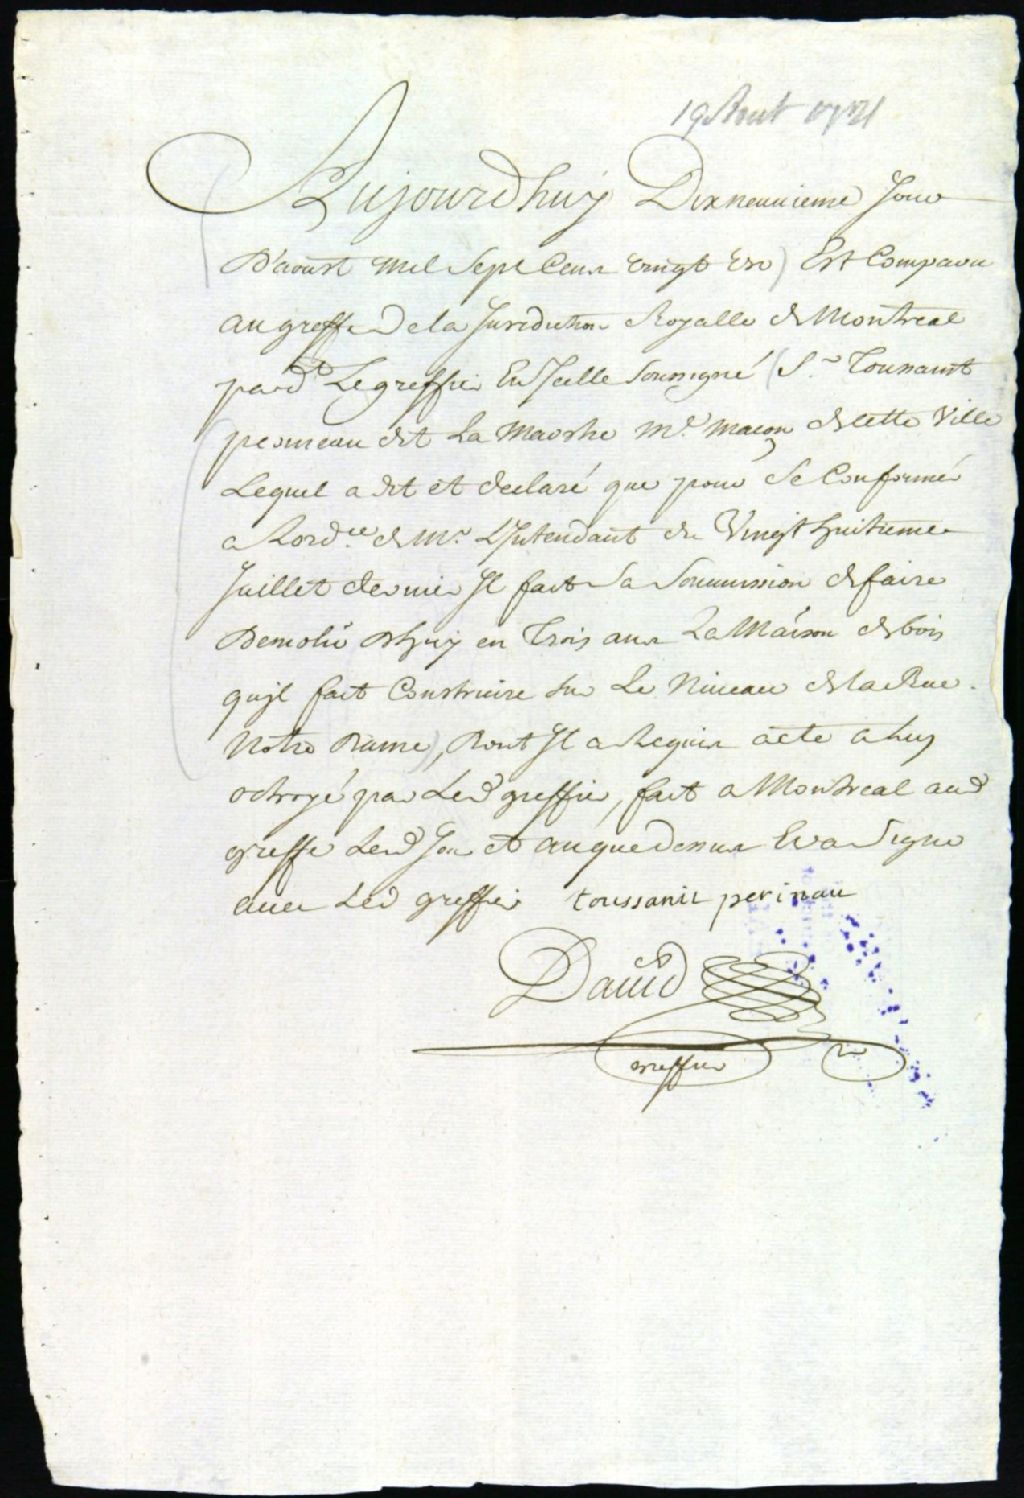 19 Aout 1721
Aujourdhuy Dixneuuieme Jour
D'aoust mil Sept Cens vingt un) Est Comparu
au greffe de la Juridiction Royalle de Montreal
pard.t Le greffier En Jcelle Soussigné (S.r Toussaint
perineau dit La Marche M.e Macon de cette Ville
Lequel a dit et declaré que pour Se Conformer
a Lord.ce de Mr. L'Intendant du Vingt huitieme
Juillet dernier Il fait Sa Soumission de faire
Demolir D'huy en Trois ans La Maison de bois
quil fait Construire Sur Le Niueau de la Rue
Notre Dame), Dont Il a Requis acte a luy
octroyé par Led greffier, fait a Montreal aud
greffe Led Jour et an que dessus Et a Signe
auec Led greffier toussaint perinau
Dauid
greffier